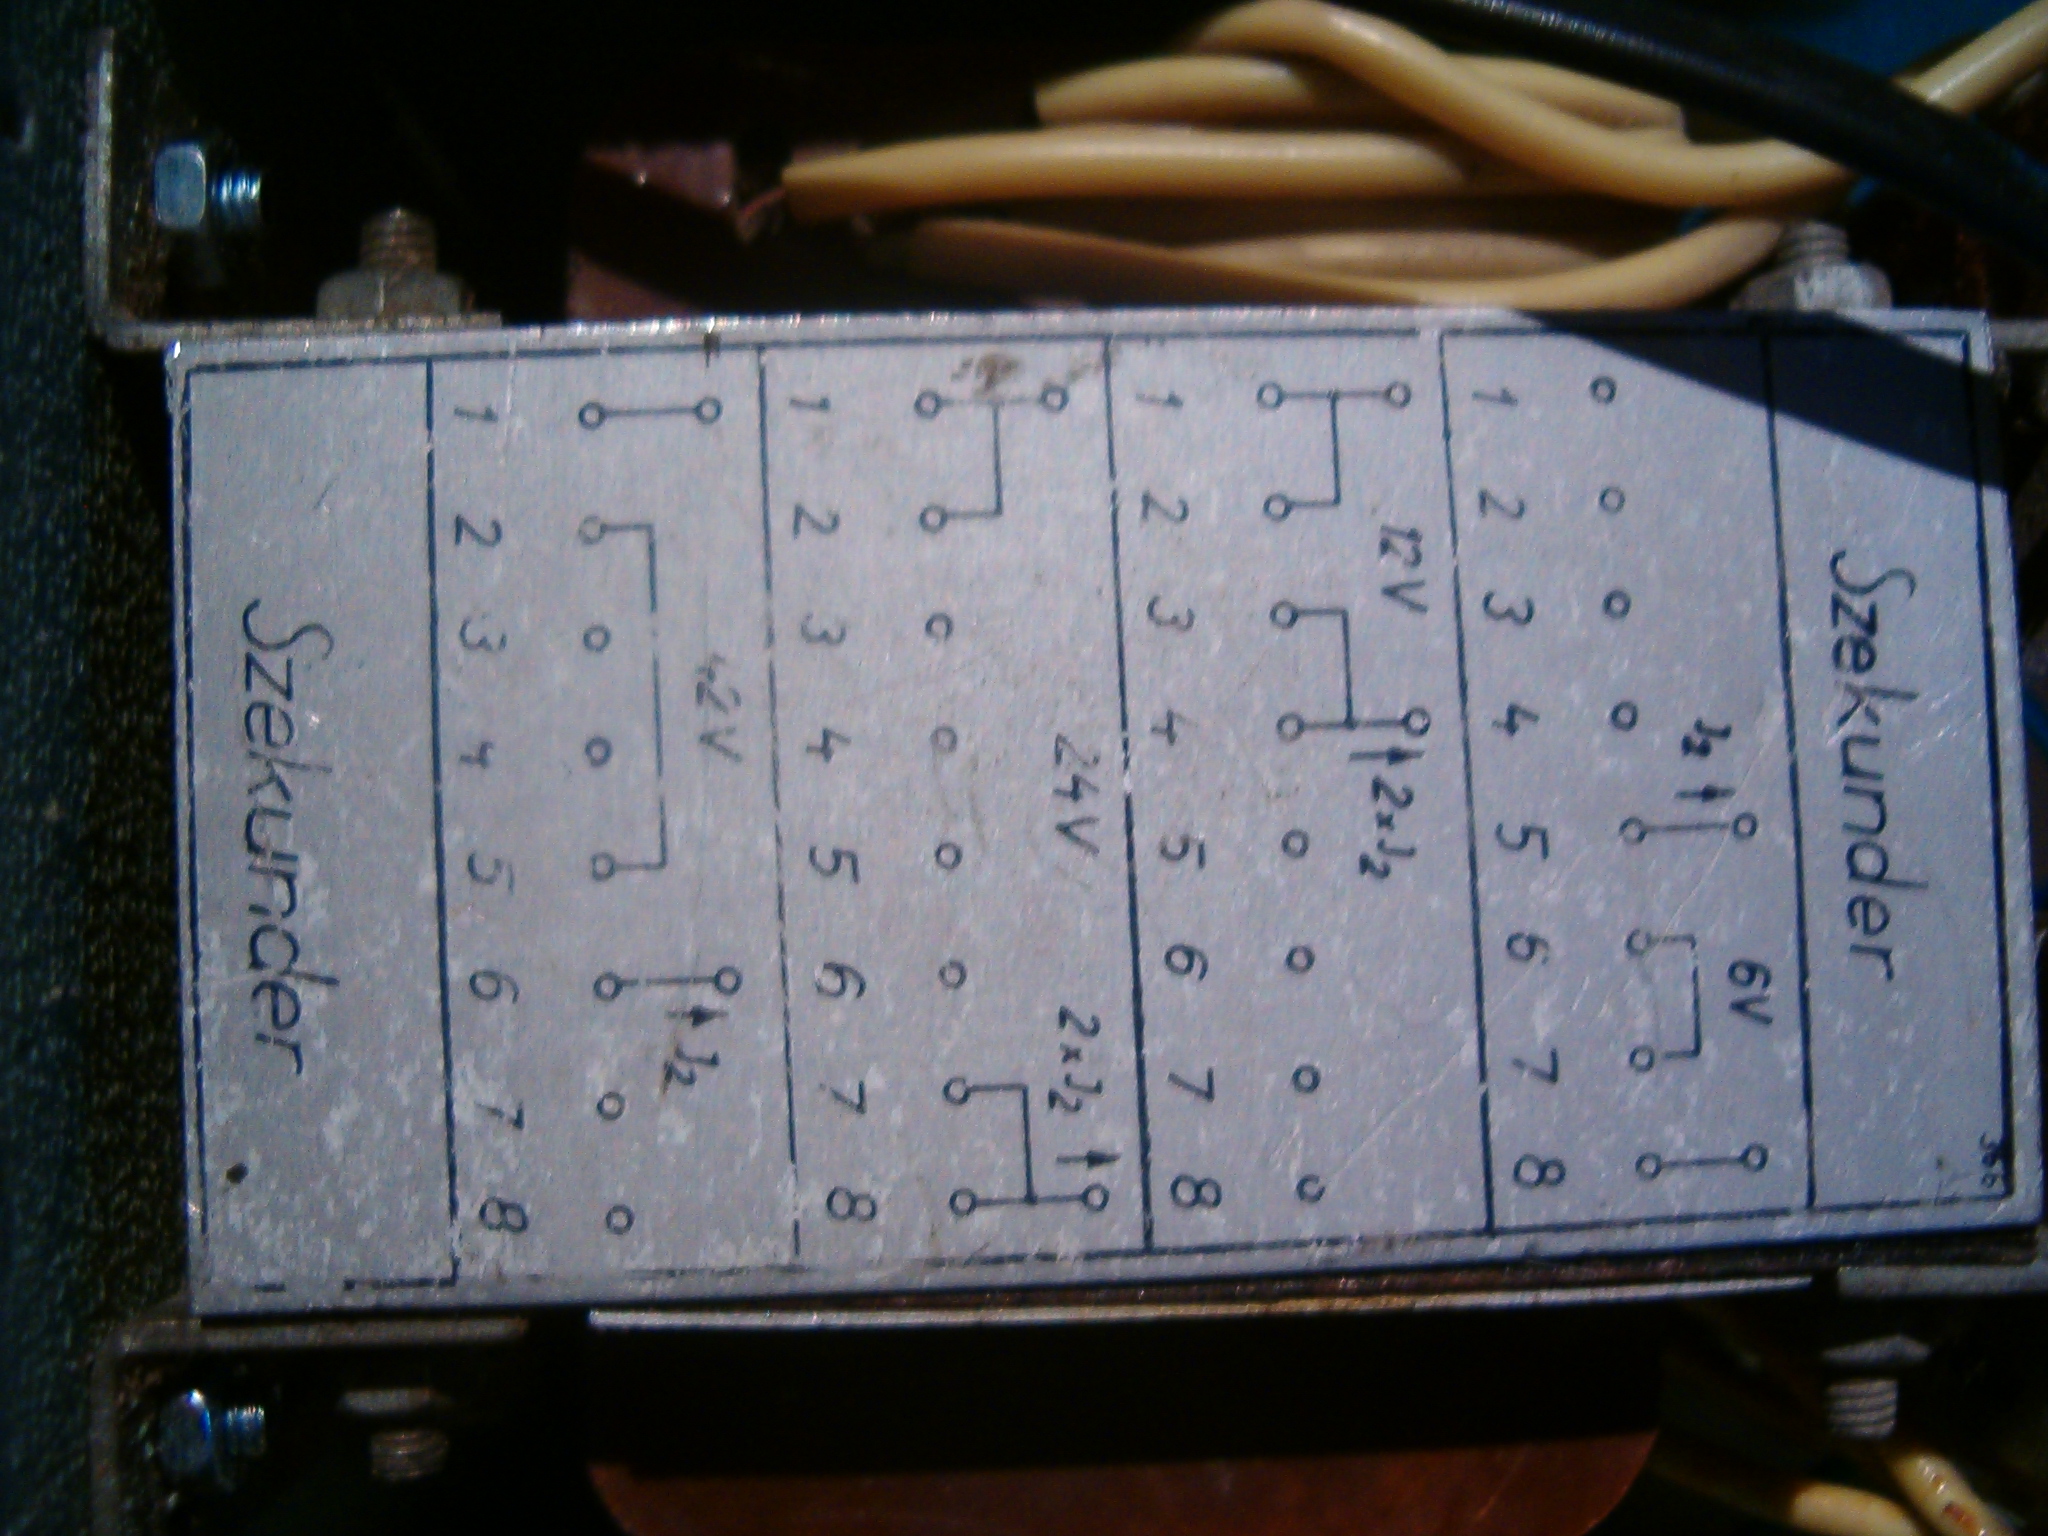 Szekunder
6V
J2
1 2 3 4 5 6 7 8
12V 2xJ2
1 2 3 4 5 6 7 8
24V 2xJ2
1 2 3 4 5 6 7 8
42V J2
1 2 3 4 5 6 7 8
Szekunder